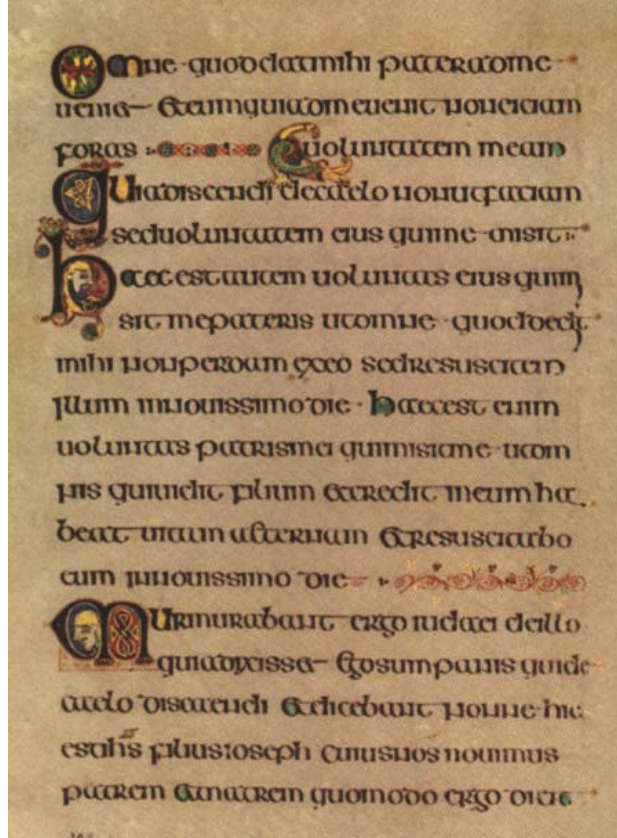 Omne quod dat mihi pater ad me
veniet et eum qui ad me venit non eiciam
foras voluntatem meam
quia discendi de caelo non ut faciam
sed voluntatem eius qui me misit
haec est autem voluntas eius qui m
sit me pateris ut omne quod dedit
mihi non perdam ex eo sed resuscitem
illum in novissimo die haec est enim
voluntas patris mei qui misit me ut om
nis qui videt filium et credit in eum ha
beat vitam aeternam et resuscitabo
eum in novissimo die
Murmurabant ergo iudaei de illo
quia dixisset ego sum panis qui de
caelo discendi et dicebant nonne hic
est ihs filius ioseph cuius nos novimus
patrem et matrem quomodo ergo dicit